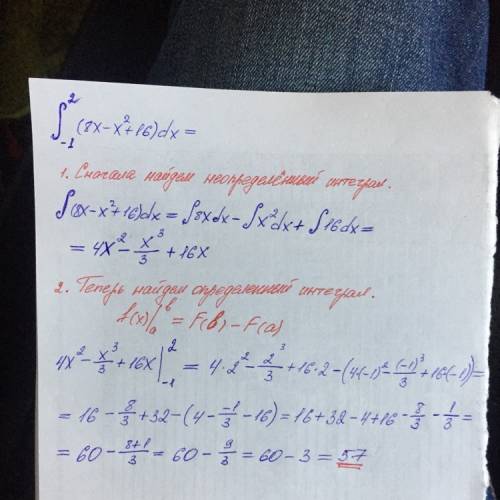 ∫₋₁² (8x-x²+16)dx =
1. Сначала найдем неопределённый интеграл.
∫(8x-x²+16)dx = ∫8xdx - ∫x²dx + ∫16dx =
= 4x² - x³/3 + 16x
2. Теперь найдем определенный интеграл.
f(x)|ₐᵇ = F(b) - F(a)
4x² - x³/3 + 16x |₋₁² = 4·2² - 2³/3 + 16·2 - (4(-1)² - (-1)³/3 + 16(-1)) =
= 16 - 8/3 + 32 - (4 - -1/3 - 16) = 16 + 32 - 4 + 16 - 8/3 - 1/3 =
= 60 - (8+1)/3 = 60 - 9/3 = 60 - 3 = 57